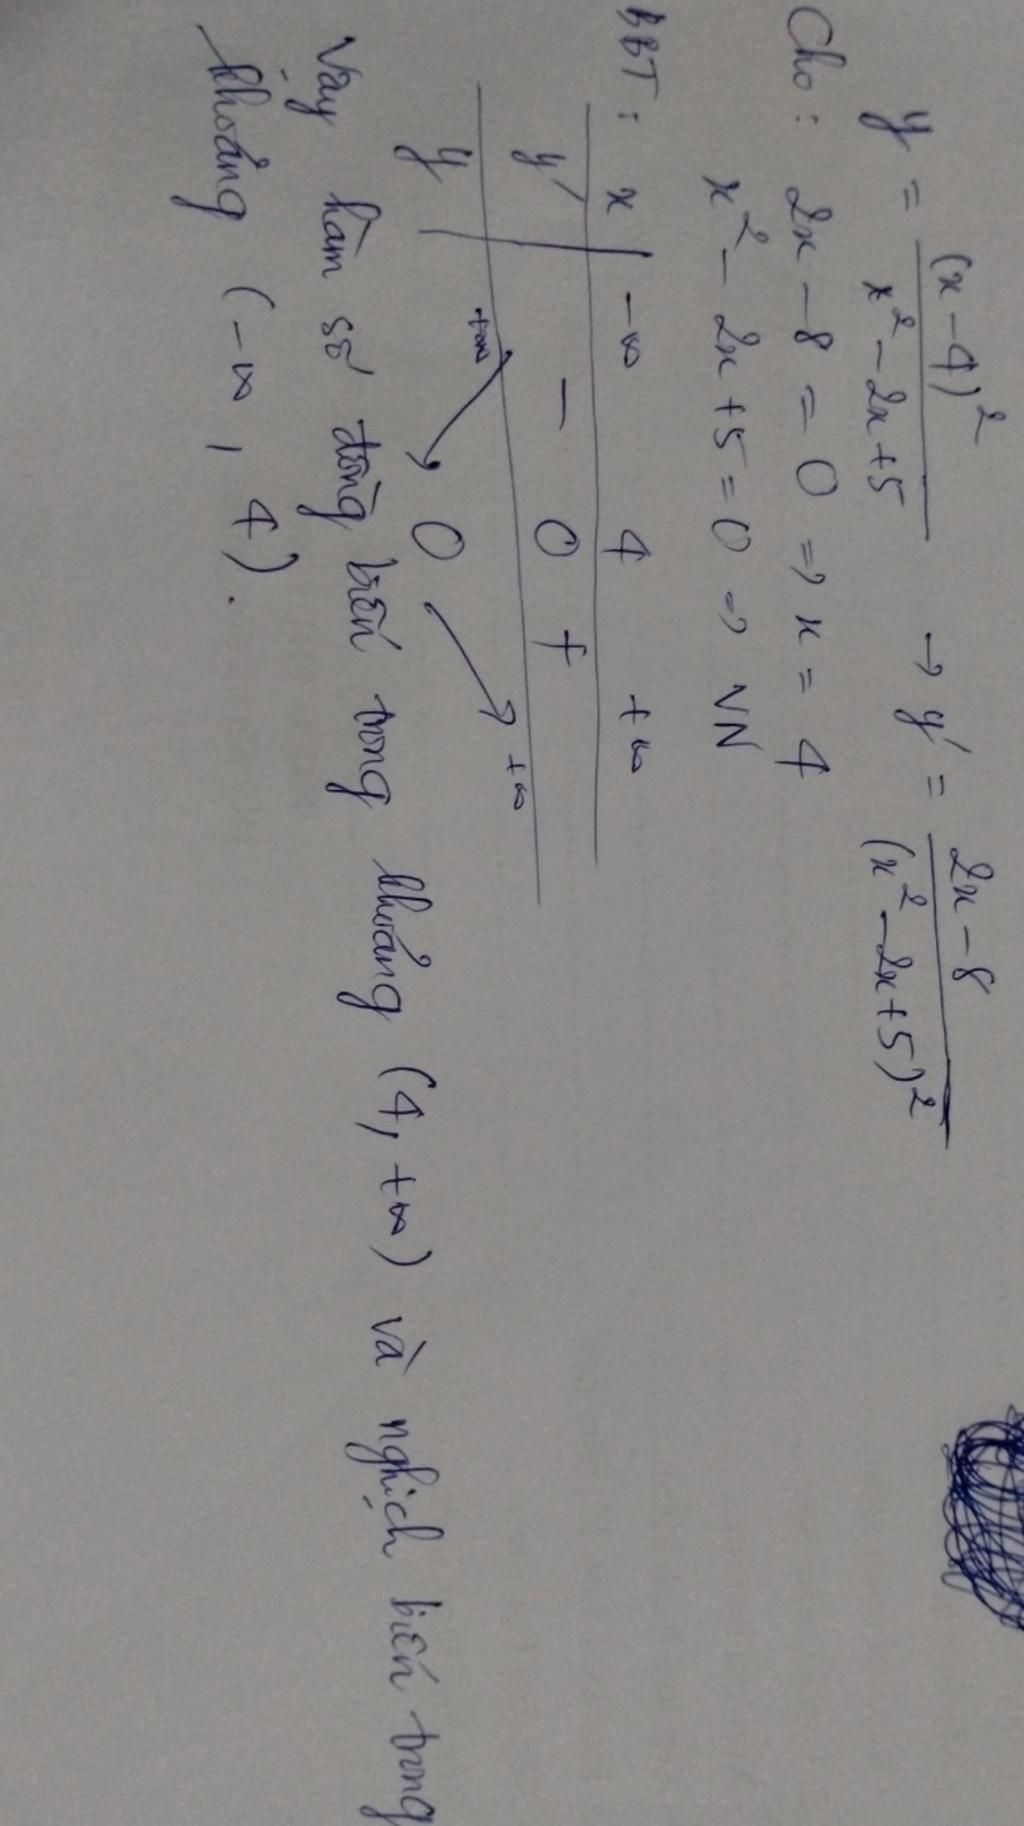 y = (x-4)² / (x² - 2x + 5) → y' = (2x - 8) / (x² - 2x + 5)²
Cho : 2x - 8 = 0 => x = 4
x² - 2x + 5 = 0 => VN
BBT : x -∞ 4 +∞
y' - 0 +
y +∞ ↘ 0 ↗ +∞
Vậy hàm số đồng biến trong khoảng (4, +∞) và nghịch biến trong
khoảng (-∞, 4).